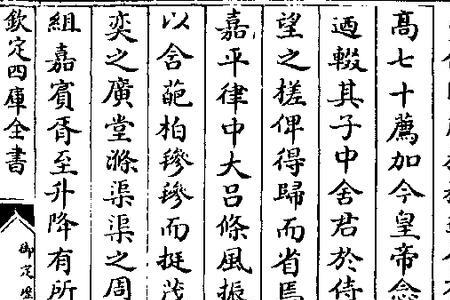 高七十薦加今皇帝念
迺輟其子中舍君於侍
望之槎俾得歸而省焉
嘉平律中大呂條風振
以含葩柏穇穇而挺茂
奕之廣堂滌渠渠之周
組嘉賓胥至升降有所
欽定四庫全書
御定歷